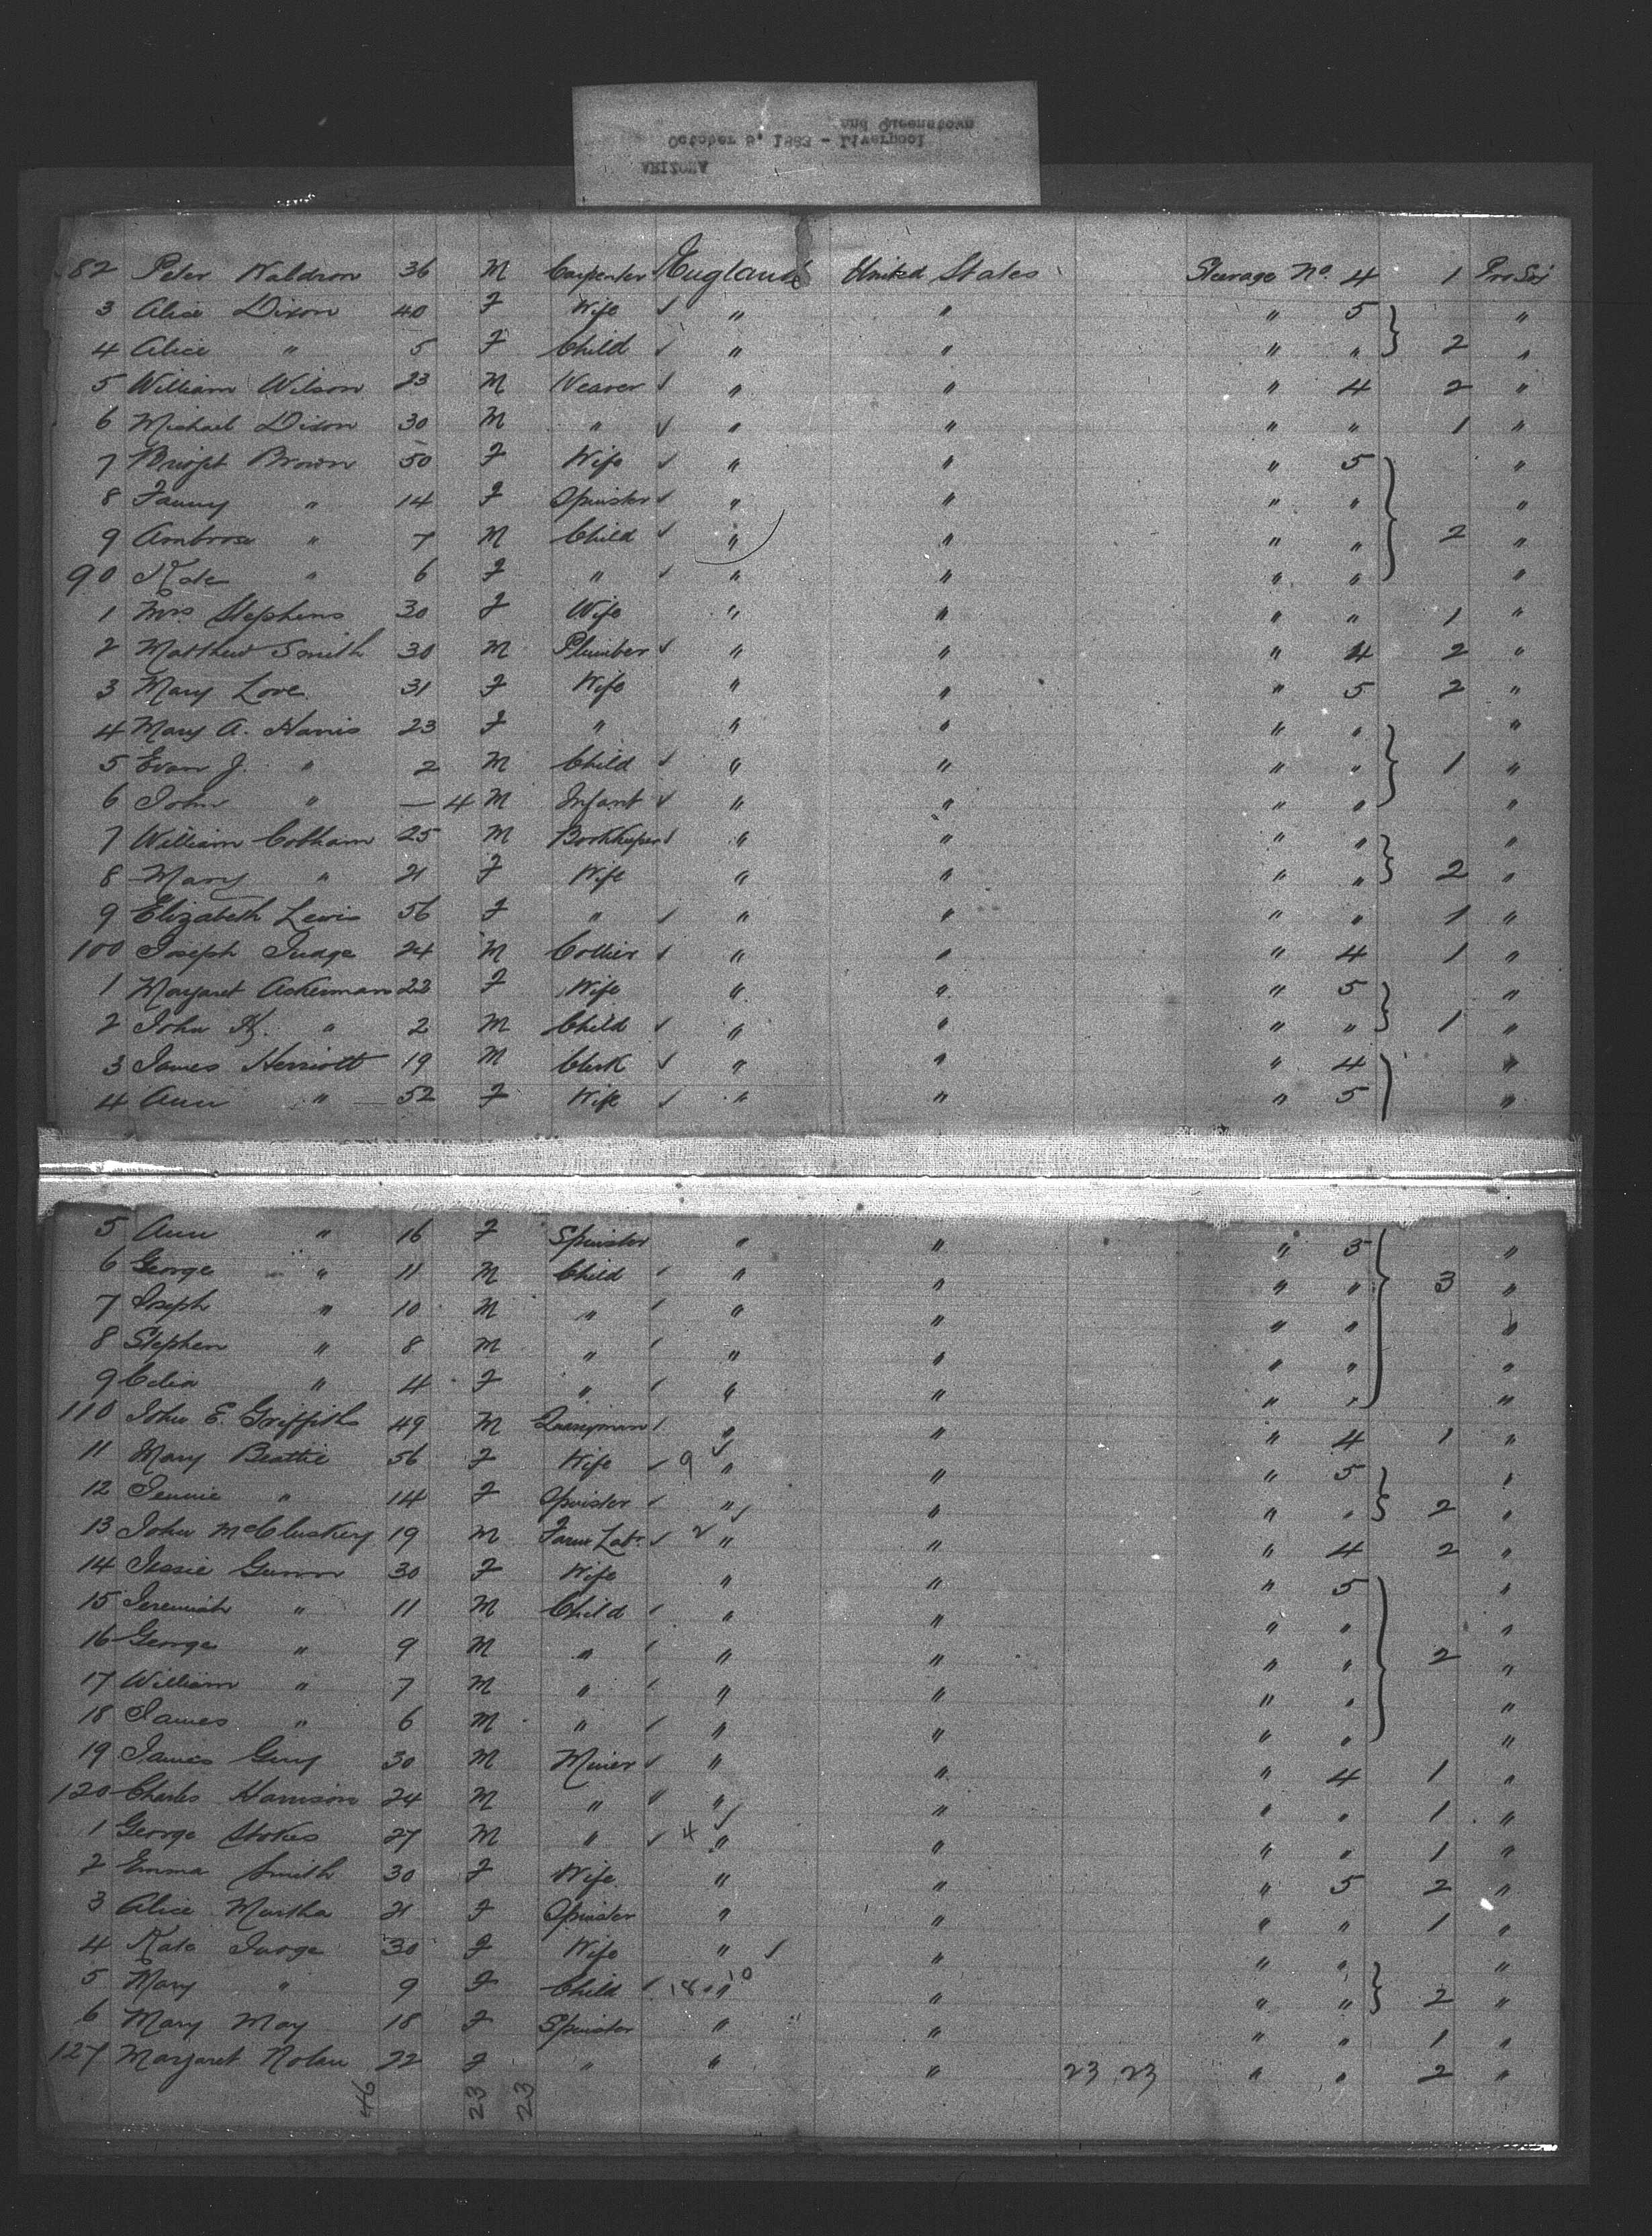 and Queenstown
October 8, 1883 - Liverpool
ARIZONA
82 Peter Waldron 36 M Carpenter England United States Steerage No. 4 1
3 Alice Dixon 40 F Wife ✓ " " " 5 "
4 Alice " 5 F Child ✓ " " " " 2 "
5 William Wilson 23 M Weaver ✓ " " " 4 2 "
6 Michael Dixon 30 M " ✓ " " " " 1 "
7 Bridget Brown 50 F Wife ✓ " " " 5 "
8 Fanny " 14 F Spinster ✓ " " " " "
9 Ambrose " 7 M Child ✓ " " " " 2 "
90 Kate " 6 F " ✓ " " " " "
1 Mrs Stephens 30 F Wife " " " " 1 "
2 Matthew Smith 30 M Plumber ✓ " " " 4 2 "
3 Mary Love 31 F Wife " " " 5 2 "
4 Mary A. Harris 23 F " " " " " "
5 Evan J. " 2 M Child ✓ " " " " 1 "
6 John " — 4 M Infant ✓ " " " " "
7 William Cobham 25 M Bookkeeper ✓ " " " " "
8 Mary " 21 F Wife " " " " 2 "
9 Elizabeth Lewis 56 F " ✓ " " " " 1 "
100 Joseph Judge 24 M Collier ✓ " " " 4 1 "
1 Margaret Ackerman 22 F Wife " " " 5 "
2 John H. " 2 M Child ✓ " " " " 1 "
3 James Herriott 19 M Clerk ✓ " " " 4 "
4 Ann " 52 F Wife ✓ " " " 5 "
5 Ann " 16 F Spinster " " " 5 "
6 George " 11 M Child ✓ " " " " 3 "
7 Joseph " 10 M " ✓ " " " " "
8 Stephen " 8 M " ✓ " " " " "
9 Celia " 4 F " ✓ " " " " "
110 John E. Griffiths 49 M Quarryman ✓ " " " 4 1 "
11 Mary Beattie 56 F Wife ✓ 9 " " " 5 "
12 Jennie " 14 F Spinster ✓ " " " " 2 "
13 John McCluskey 19 M Farm Labr ✓ 2 " " " 4 2 "
14 Jessie Gunn 30 F Wife " " " 5 "
15 Jeremiah " 11 M Child ✓ " " " " "
16 George " 9 M " ✓ " " " " 2 "
17 William " 7 M " ✓ " " " " "
18 James " 6 M " ✓ " " " " "
19 James 30 M Miner ✓ " " " 4 1 "
120 Charles Harrison 24 M " " " " " " 1 "
1 George Stokes 27 M " ✓ 4 " " " " 1 "
2 Emma Smith 30 F Wife " " " 5 2 "
3 Alice Martha 21 F Spinster " " " " 1 "
4 Kate 30 F Wife " ✓ " " " "
5 Mary " 9 F Child ✓ 18 " 10 " " " 2 "
6 Mary May 18 F Spinster " " " " 1 "
127 Margaret Nolan 22 F " " " 23 23 " " 2 "
46 23 23